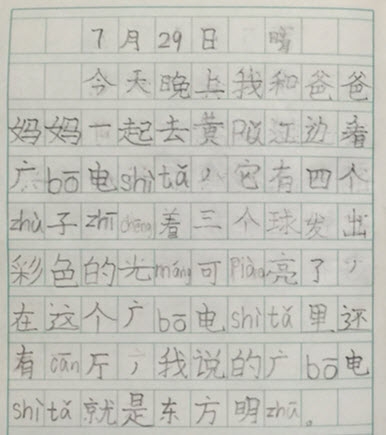 7月29日 晴
今天晚上我和爸爸
妈妈一起去黄pǔ江边看
广bō电shìtǎ，它有四个
zhù子zhī chēng着三个球发出
彩色的光máng可piào亮了，
在这个广bō电shìtǎ里还
有cān厅，我说的广bō电
shìtǎ就是东方明zhū。